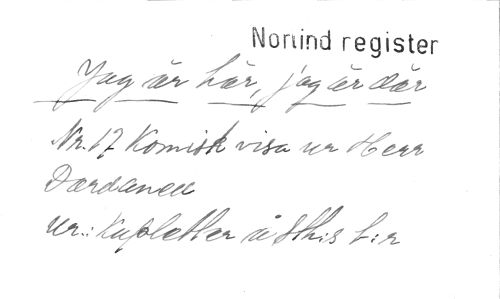 Norlind register
Jag är här, jag är där
Nr. 17 Komisk visa ur Herr
Dardanell
ur: Kupletter å Sth:s t:r